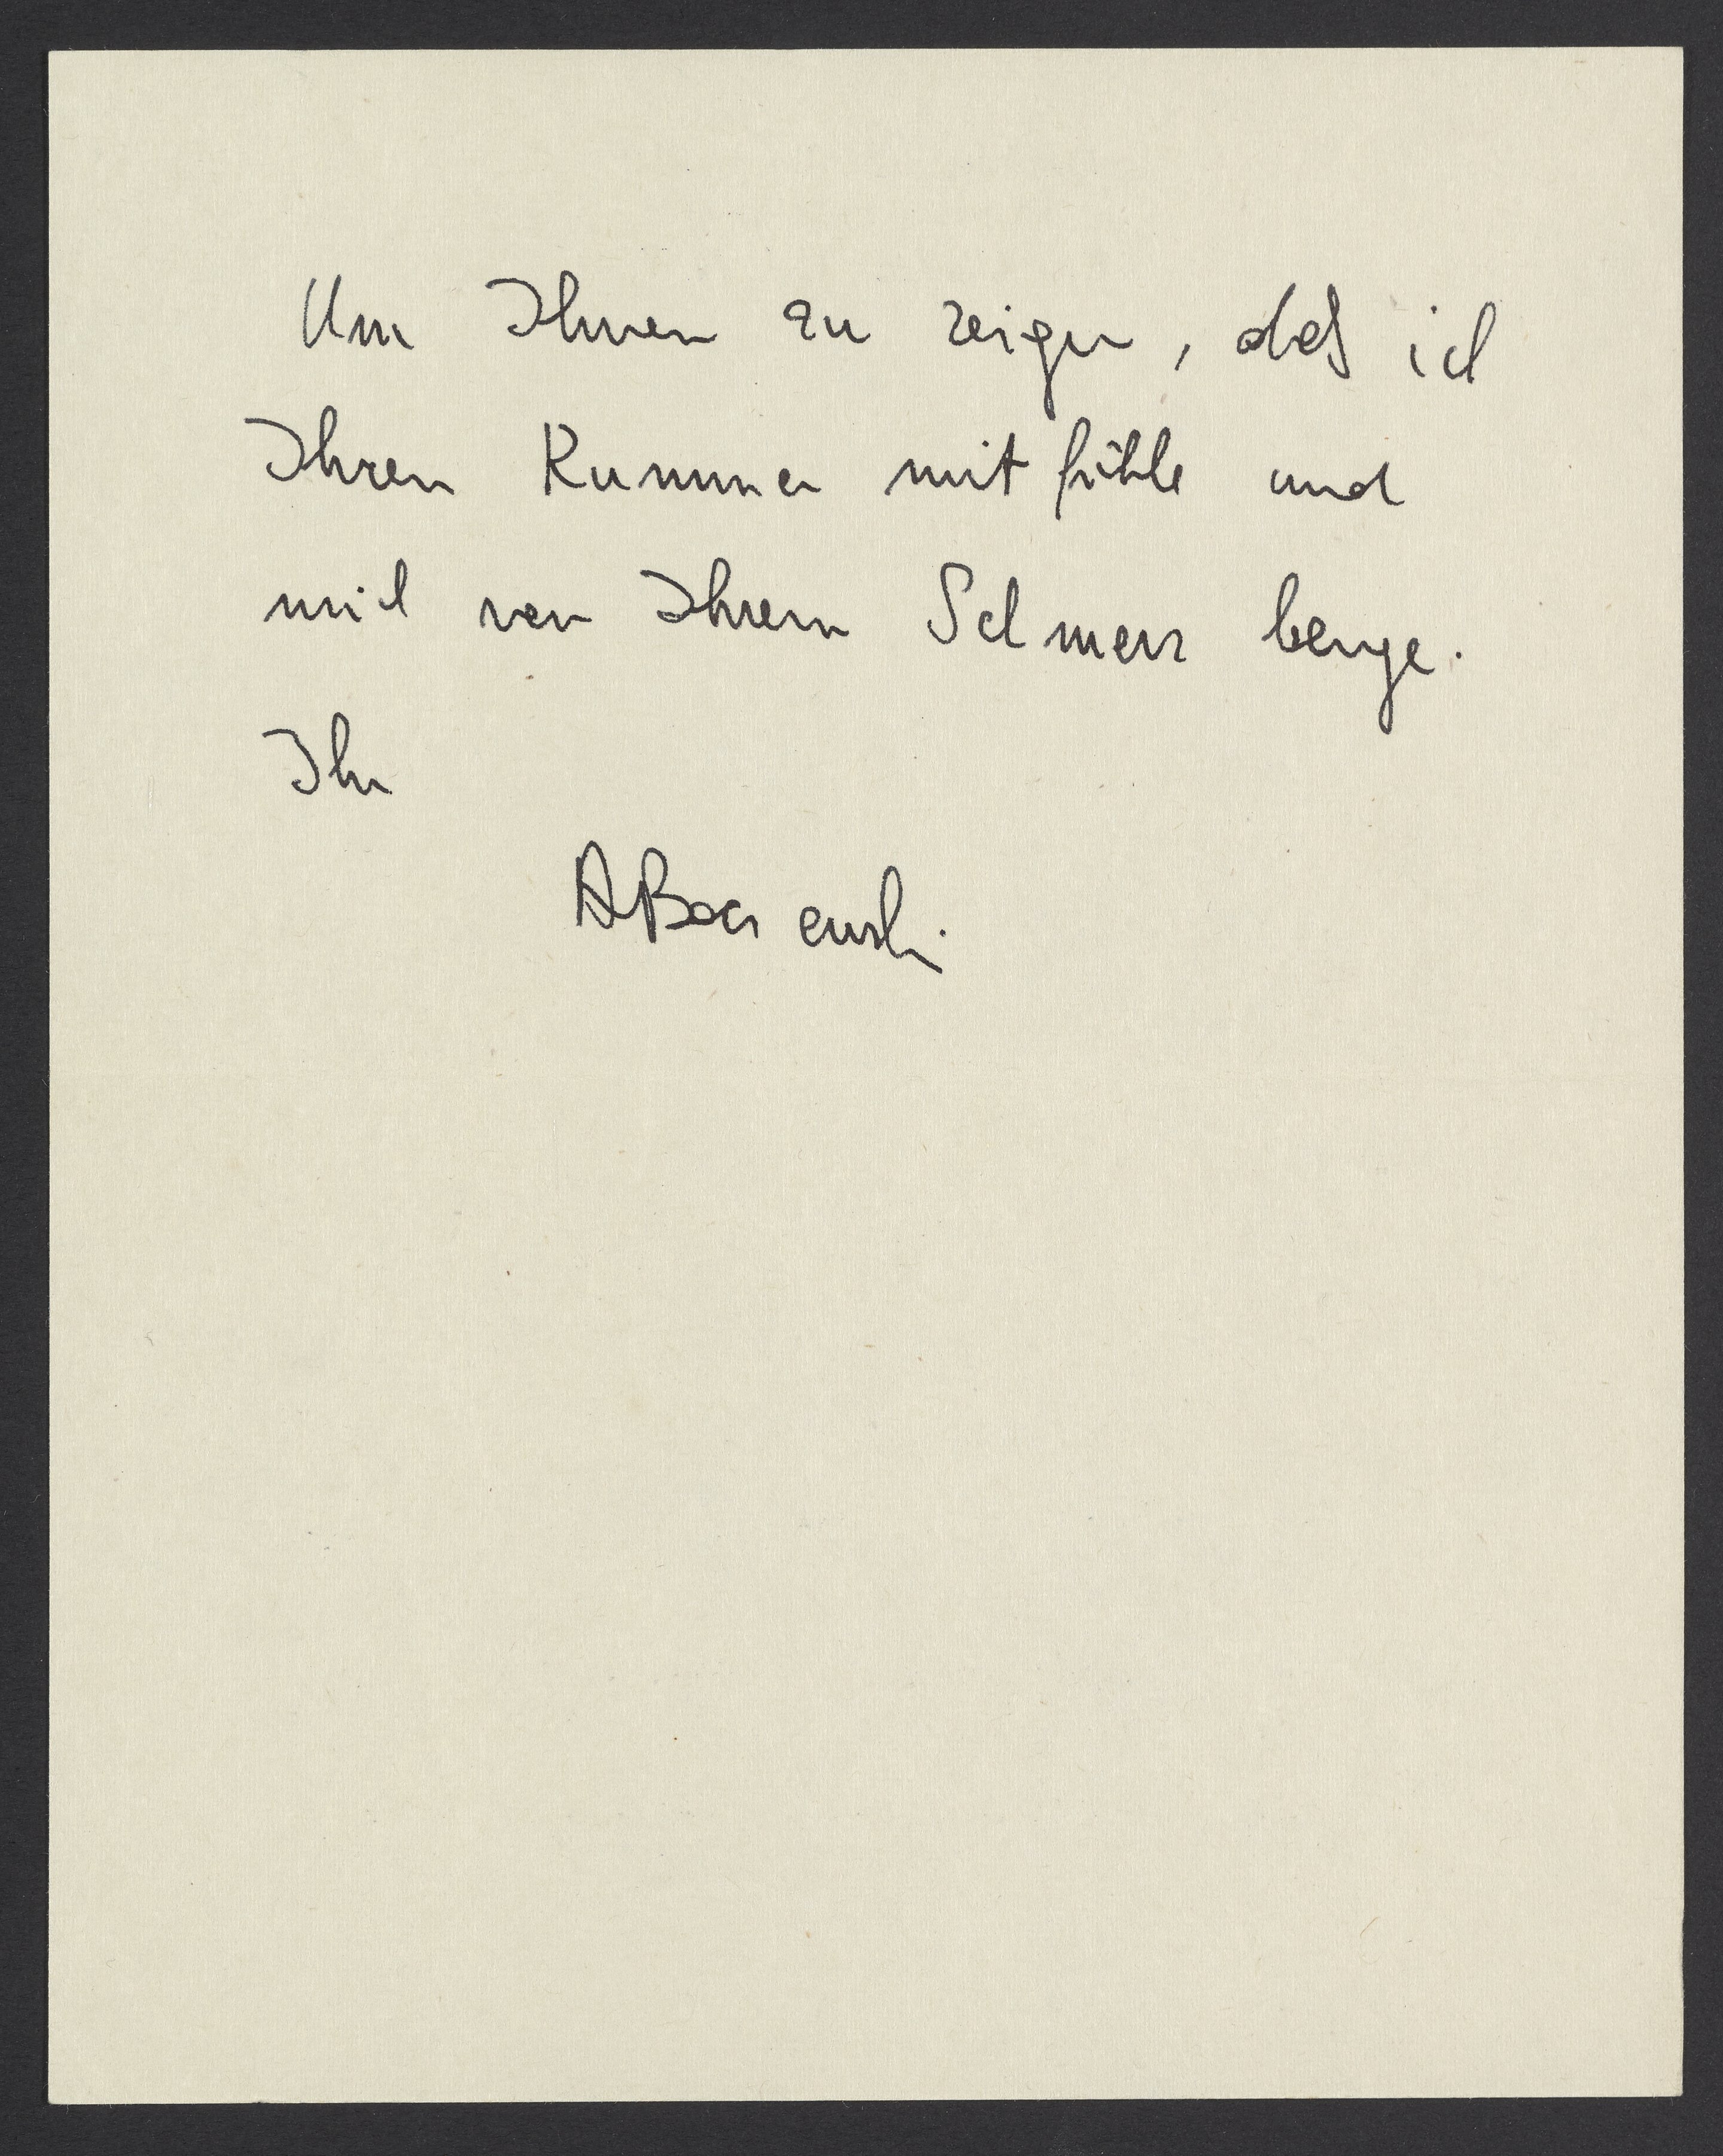 Um Ihnen zu zeigen, daß ich
Ihren Kummer mitfühle und
mich vor Ihrem Schmerz beuge.
Ihr